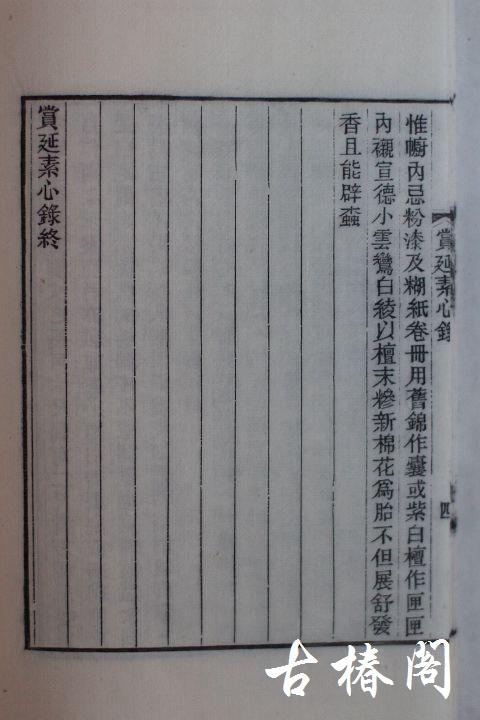 賞延素心錄
四
惟幮内忌粉漆及糊紙卷冊用舊錦作囊或紫白檀作匣匣
内襯宣德小雲鸞白綾以檀末糝新棉花爲胎不但展舒發
香且能辟蠹
賞延素心錄終
古椿閣